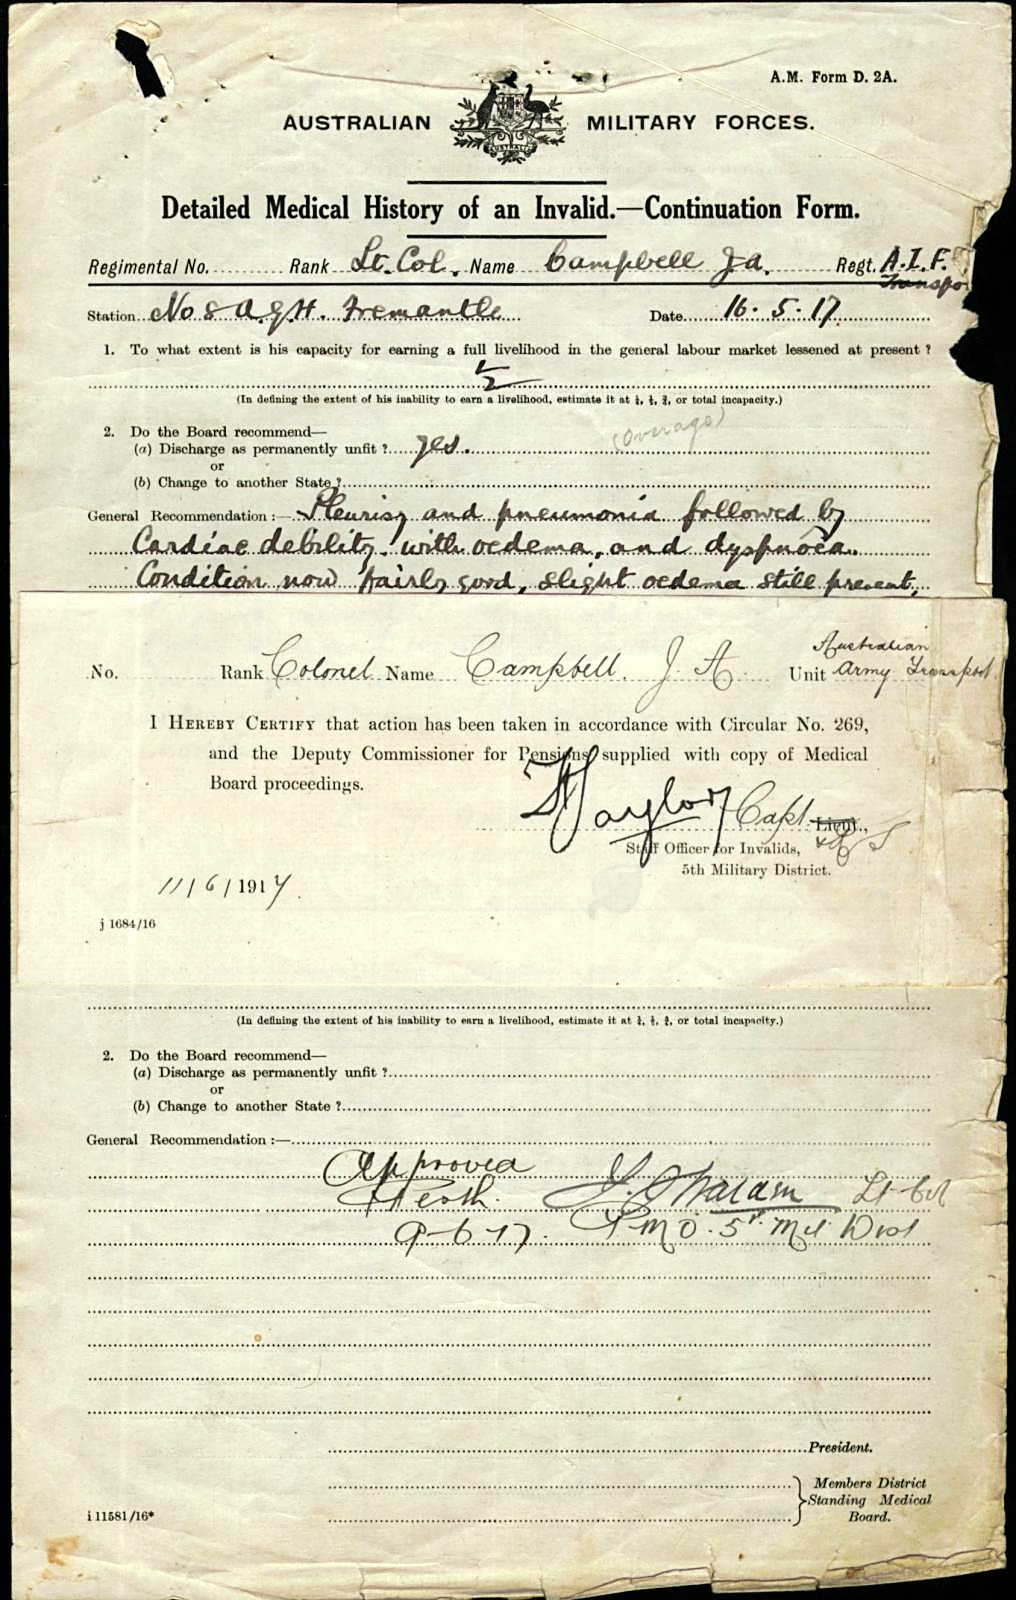 A.M. Form D. 2A.
AUSTRALIAN MILITARY FORCES.
AUSTRALIA
Detailed Medical History of an Invalid.—Continuation Form.
Regimental No. Rank Lt. Col. Name Campbell J A. Regt. A.I.F.
Transpo
Station No 8 A.G.H. Fremantle Date 16.5.17
1. To what extent is his capacity for earning a full livelihood in the general labour market lessened at present?
1/2
(In defining the extent of his inability to earn a livelihood, estimate it at ¼, ½, ¾, or total incapacity.)
2. Do the Board recommend—
(overage)
(a) Discharge as permanently unfit? yes.
or
(b) Change to another State?
General Recommendation:— Pleurisy and pneumonia followed by
Cardiac debility, with oedema, and dyspnoea.
Condition now fairly good, slight oedema still present,
Australian
No. Rank Colonel Name Campbell. J. A. Unit Army Transport
I HEREBY CERTIFY that action has been taken in accordance with Circular No. 269,
and the Deputy Commissioner for Pensions supplied with copy of Medical
Board proceedings.
Taylor Capt Lieut.,
Staff Officer for Invalids,
5th Military District.
11/6/1917.
j 1684/16
(In defining the extent of his inability to earn a livelihood, estimate it at ¼, ½, ¾, or total incapacity.)
2. Do the Board recommend—
(a) Discharge as permanently unfit?
or
(b) Change to another State?
General Recommendation:—
Approved
Perth. Lt Col
9-6-17. P M O. 5th Mil Dist
President.
Members District
Standing Medical
Board.
i 11581/16*